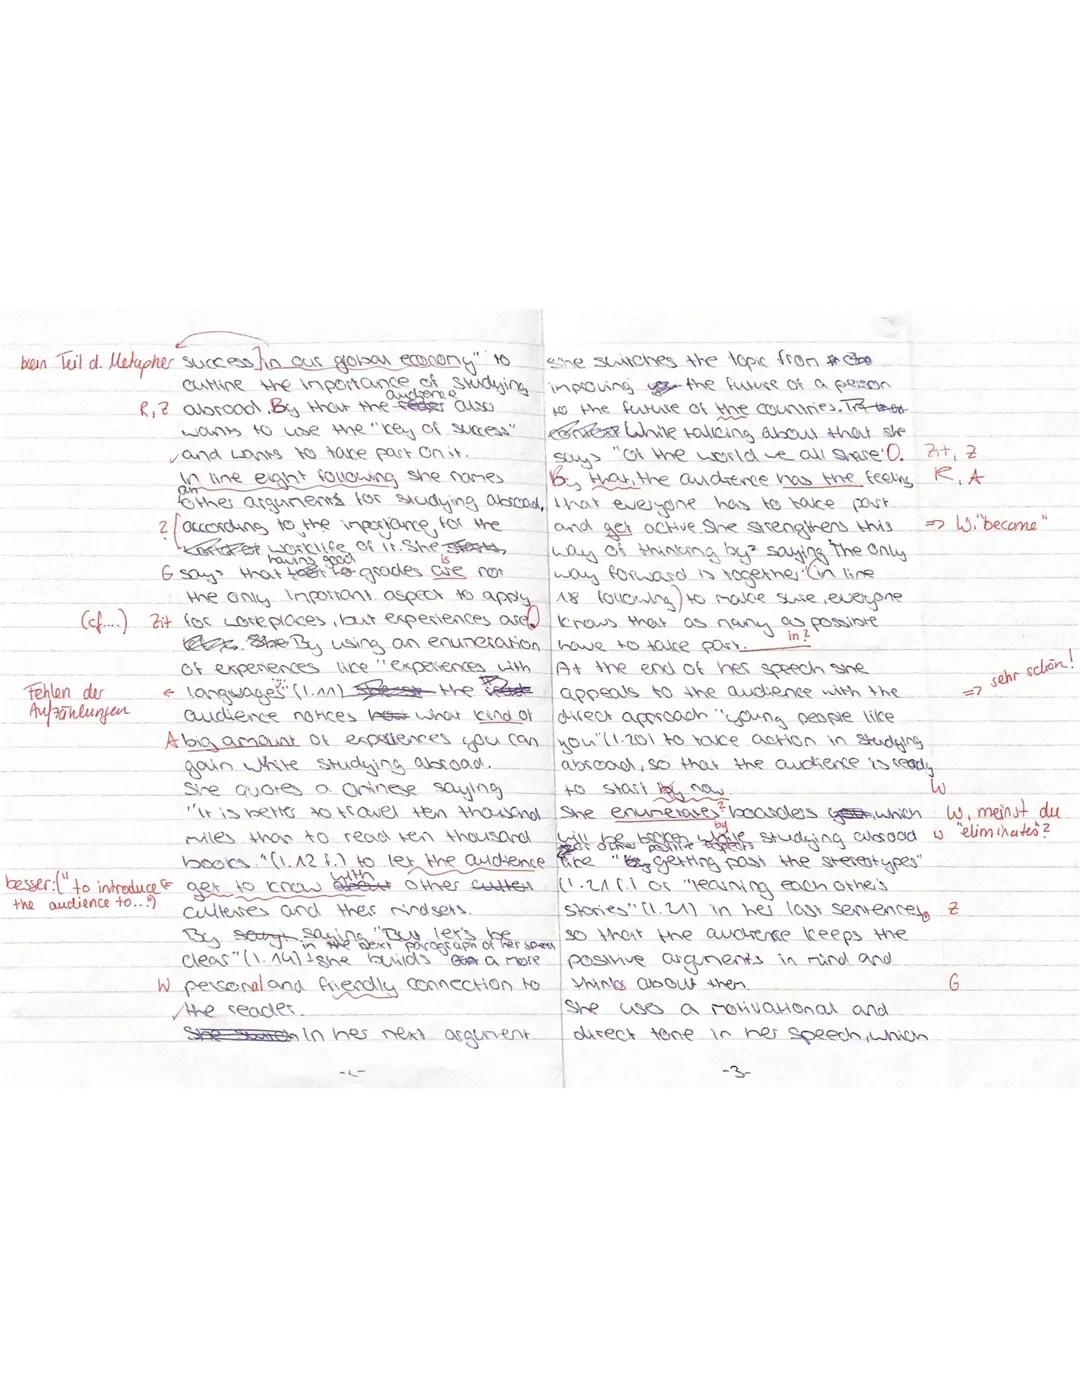 kein Teil d. Metapher success in our global economy" to
outline the importance of studying
audience
R, Z abroad. By that the also
wants to use the "key of success"
and wants to take part on it.
In line eight following she names
an
other arguments for studying abroad,
? according to the importance, for the
worklife of it. She
having good is
G says that grades are not
the only important aspect to apply
(cf....) Zit for workplaces, but experiences are.
By using an enumeration
of experiences like "experiences with
Fehlen der ← languages" (l.11) the
Aufzählungen audience notices what kind of
A big amount of experiences you can
gain while studying abroad.
She quotes a Chinese saying
"it is better to travel ten thousand
miles than to read ten thousand
books." (l.12 f.) to let the audience
besser: ("to introduce get to know with other
the audience to...") cultures and their mindsets.
By saying "But let's be
in the next paragraph of her speech
clear" (l.14) she builds a more
W personal and friendly connection to
the reader.
In her next argument
-2-
she switches the topic from
improving the future of a person
to the future of the countries.
While talking about that she
says "Of the world we all share". Zit, Z
By that, the audience has the feeling R, A
that everyone has to take part
and get active. She strengthens this => W. "become"
way of thinking by saying "The only
way forward is together" (in line
18 following) to make sure, everyone
knows that as many as possible
in?
have to take part.
At the end of her speech she
appeals to the audience with the => sehr schön!
direct approach "young people like
you" (l.20) to take action in studying
abroad, so that the audience is ready
to start by now W
She enumerates? boarders which W, meinst du
by
will be broken while studying abroad W "eliminates"?
other positive aspects
like "getting past the stereotypes"
(l.21 f.) or "learning each others
stories" (l.21) in her last sentences, Z
so that the audience keeps the
positive arguments in mind and
thinks about them. G
She uses a motivational and
direct tone in her speech, which
-3-